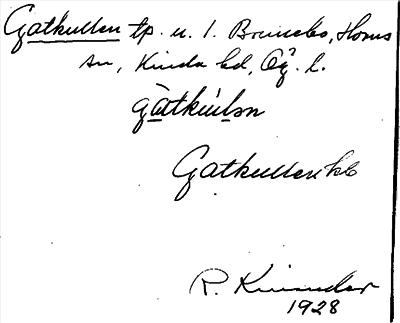 Gatkullen tp. u. 1. Bruncbo, Horns
sn, Kinda hd, Ög. l.
gàtkúlən
Gatkullen kb
R.
1928